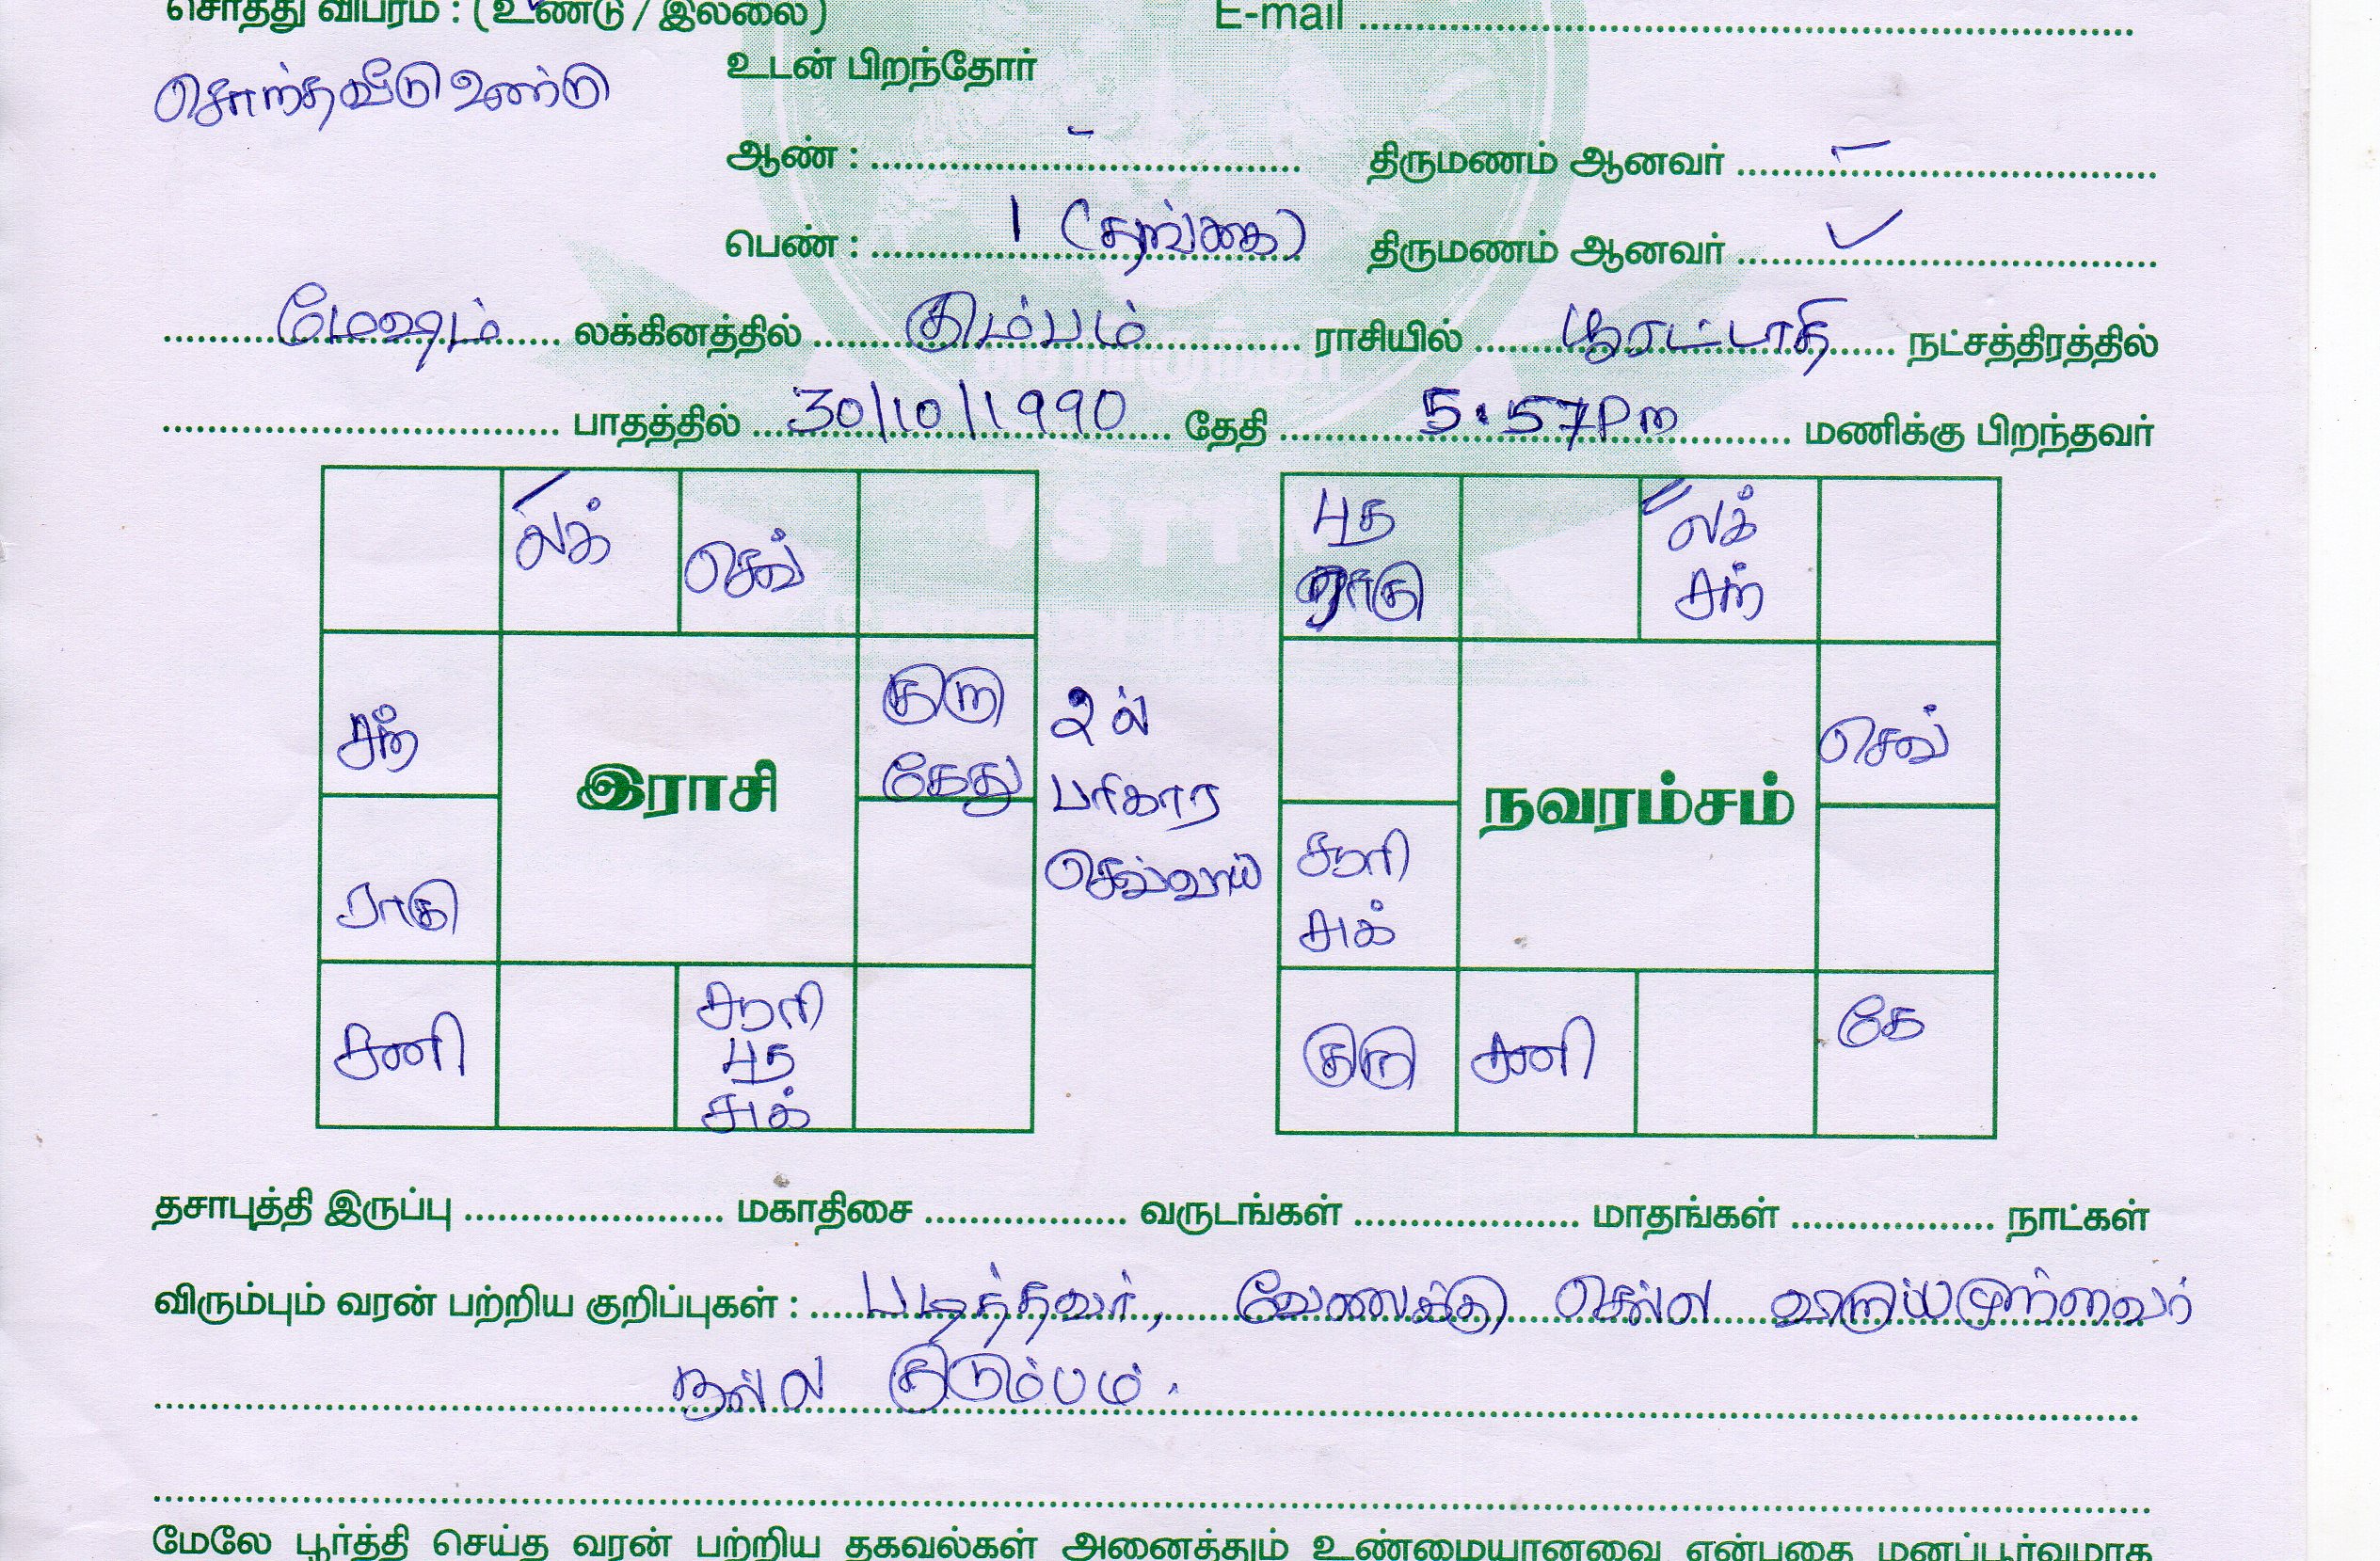 சொத்து விபரம் : (உண்டு / இல்லை) E-mail
சொந்தவீடு உண்டு உடன் பிறந்தோர்
ஆண் : - திருமணம் ஆனவர் -
பெண் : 1 (தங்கை) திருமணம் ஆனவர் ✓
மேஷம் லக்கினத்தில் கும்பம் ராசியில் பூரட்டாதி நட்சத்திரத்தில்
பாதத்தில் 30/10/1990 தேதி 5.57Pm மணிக்கு பிறந்தவர்
லக் செவ்
சந் குரு கேது
இராசி
ராகு
சனி சூரி புத சுக்
2ல்
பரிகார
செவ்வாய்
புத ராகு லக் சந்
செவ்
நவரம்சம்
சூரி சுக்
குரு சனி கே
VSTT
தசாபுத்தி இருப்பு மகாதிசை வருடங்கள் மாதங்கள் நாட்கள்
விரும்பும் வரன் பற்றிய குறிப்புகள் : படித்தவர், வேலைக்கு செல்ல
நல்ல குடும்பம்.
மேலே பூர்த்தி செய்த வரன் பற்றிய தகவல்கள் அனைத்தும் உண்மையானவை என்பதை மனப்பூர்வமாக